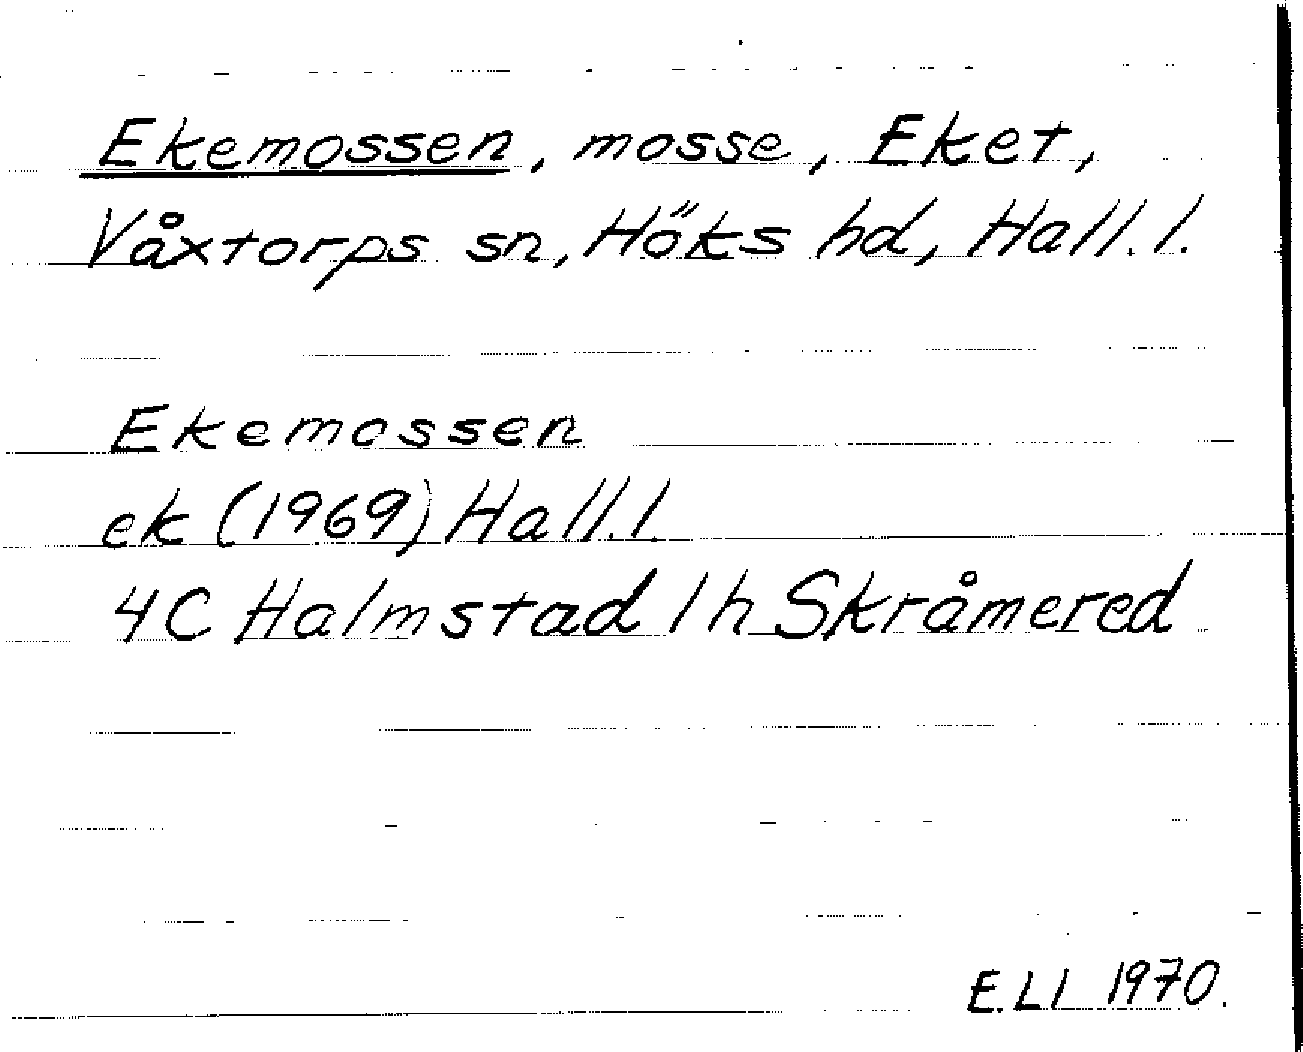 Ekemossen, mosse, Eket,
Våxtorps sn, Höks hd, Hall. l.
Ekemossen
ek (1969) Hall. l.
4C Halmstad 1h Skråmered
E. Ll 1970.